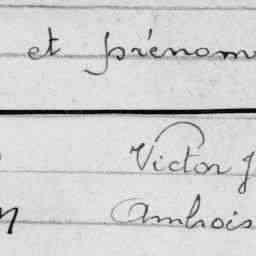 et prénom
Victor J
Ambrois